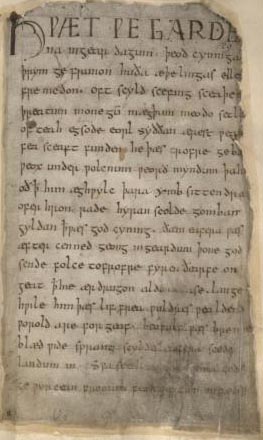 HǷÆT ǷE GARDE
na ingear dagum. þeod cyninga
þrym ge frunon huða æþelingas elle
fre medon. oft scyld scefing sceaþe
þreatum monegū mægþum meodo setl
of teah egsode eorl syððan ærest ƿear
fea sceaft funden he þæs frofre geba
ƿeox under ƿolcnum ƿeorð myndum þah
oð ꝥ him æghƿylc þara ymb sittendra
ofer hron rade hyran scolde gomban
gyldan ꝥ ƿæs god cyning. ðæm eafera ƿæs
æfter cenned geong ingeardum þone god
sende folce tofrofre fyren ðearfe on
geat ꝥ hie ær drugon aldor ase. lange
hƿile him þæs lif frea ƿuldres ƿealdend
ƿorold are forgeaf. beoƿulf ƿæs breme
blæd ƿide sprang scyldes eafera scede
landum in. Sƿa sceal